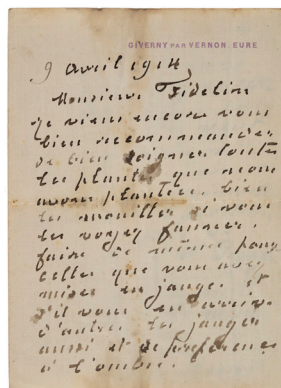 GIVERNY PAR VERNON EURE
9 avril 1914
Monsieur Fidelin
je viens encore vous
bien recommander
de bien soigner toutes
les plantes que nous
avons plantées, bien
les mouiller si vous
les voyez faner,
faire de même pour
celles que vous avez
mises en jauge. et
s'il vous en arrive
d'autres les jauger
aussi et de préférence
à l'ombre.